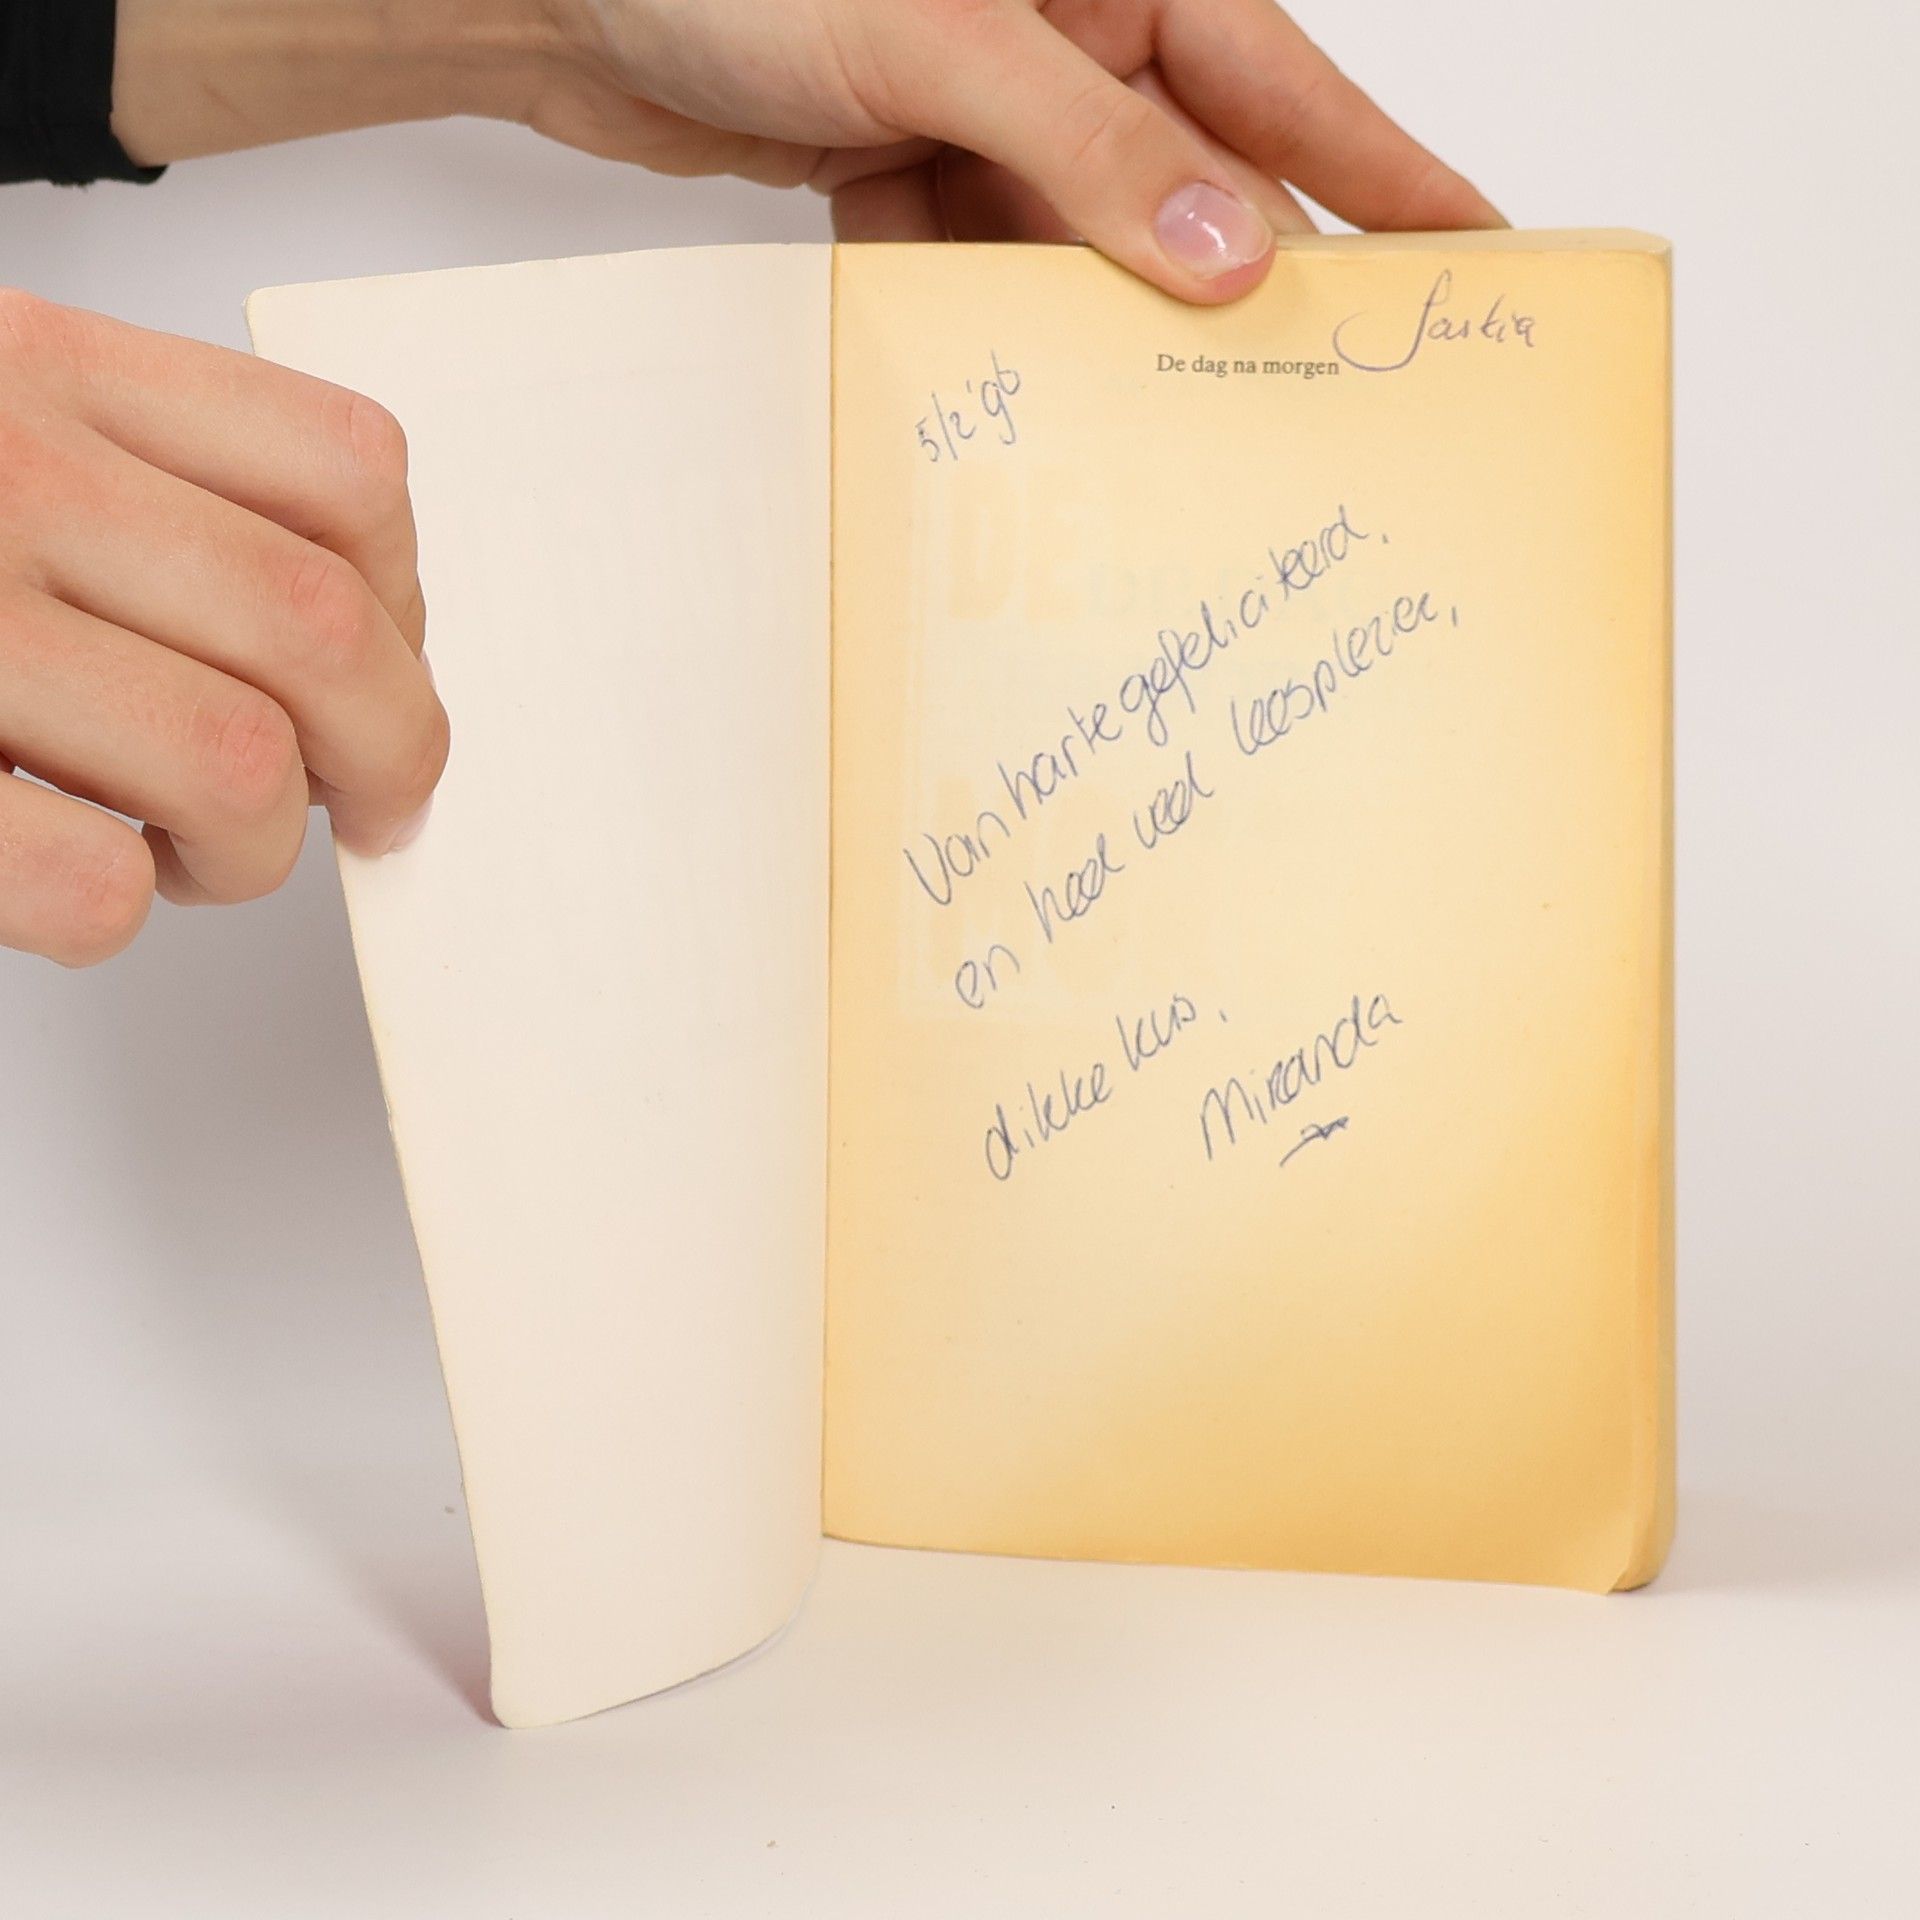 Saskia
De dag na morgen
5/2 '96
Van harte gefeliciteerd,
en heel veel leesplezier,
dikke kus,
Miranda